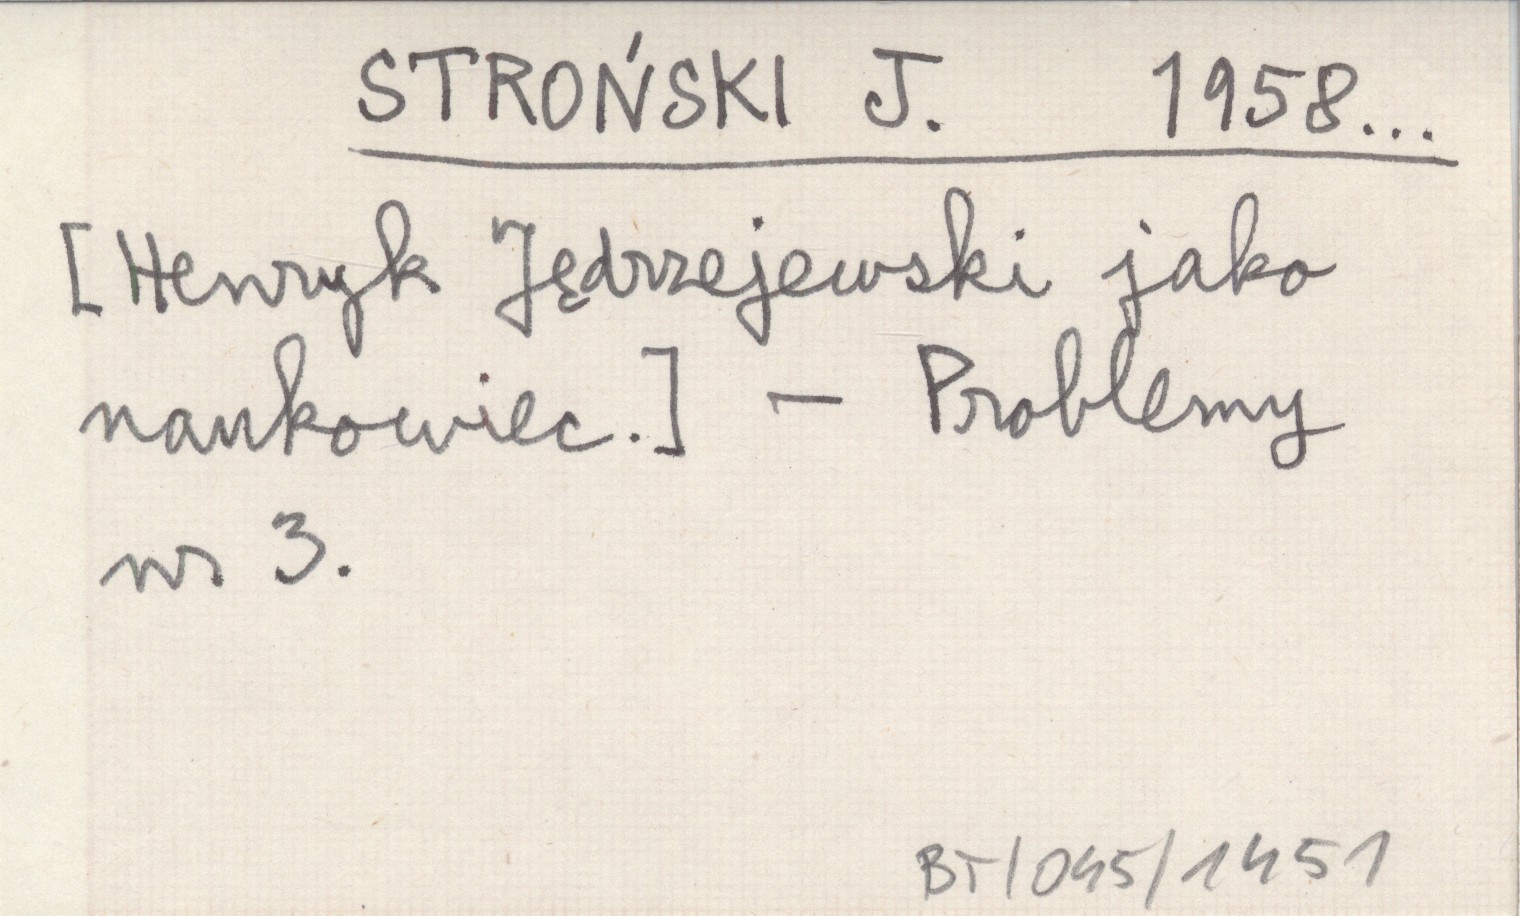 STROŃSKI J. 1958...
[Henryk Jędrzejewski jako
naukowiec.] – Problemy
nr 3.
BT/045/1451